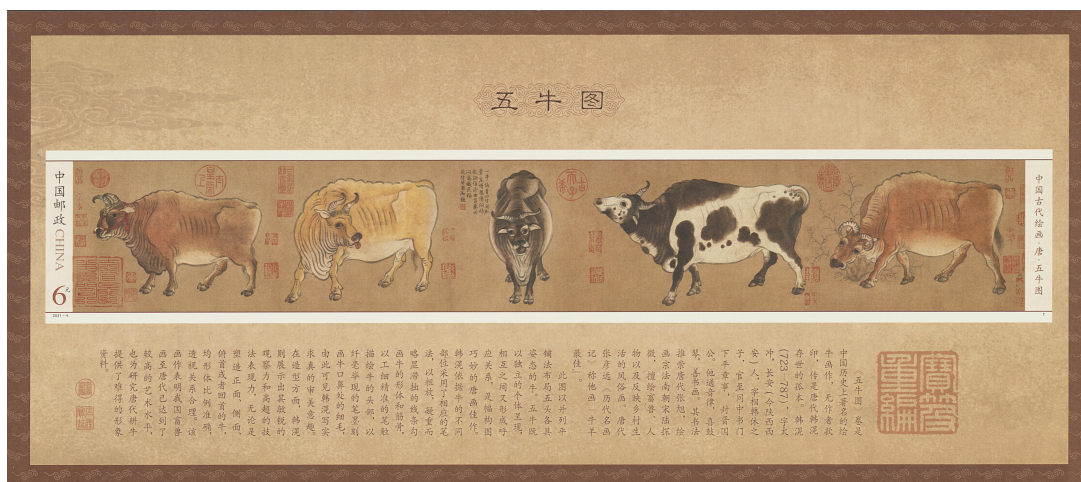 五牛图
中国邮政 CHINA
6元
2021-4
中国古代绘画·唐·五牛图
《五牛图》卷是
中国历史上著名的绘
牛画作，无作者款
印，传是唐代韩滉
存世的孤本。韩滉
(723-787)，字太
冲，长安(今陕西西
安)人，宰相韩休之
子，官至同中书门
下平章事，封晋国
公。他通音律，喜鼓
琴，善书画。其书法
推崇唐代张旭，绘
画宗法南朝宋陆探
微，擅绘畜兽、人
物以及反映乡村生
活的风俗画。唐代
张彦远《历代名画
记》称他画“牛羊
最佳”。
此图以并列平
铺法布局五头各具
姿态的牛。五牛既
以独立的个体呈现，
相互之间又形成呼
应关系，是幅构图
巧妙的唐画佳作。
韩滉依据牛的不同
部位采用了相应的笔
法，以粗放、凝重而
略显滞拙的线条勾
画牛的形体和筋骨，
以工细精准的笔触
描绘牛的头部，以
纤毫毕现的笔墨刻
画牛口鼻处的细毛，
由此可见韩滉写实
求真的审美意趣。
在造型方面，韩滉
则展示出其敏锐的
观察力和高超的技
法表现力。无论是
塑造正面、侧面、
俯首或者回首的牛，
均形体比例准确，
透视关系合理。该
画作表明我国畜兽
画至唐代已达到了
较高的艺术水平，
也为研究唐代耕牛
提供了难得的形象
资料。